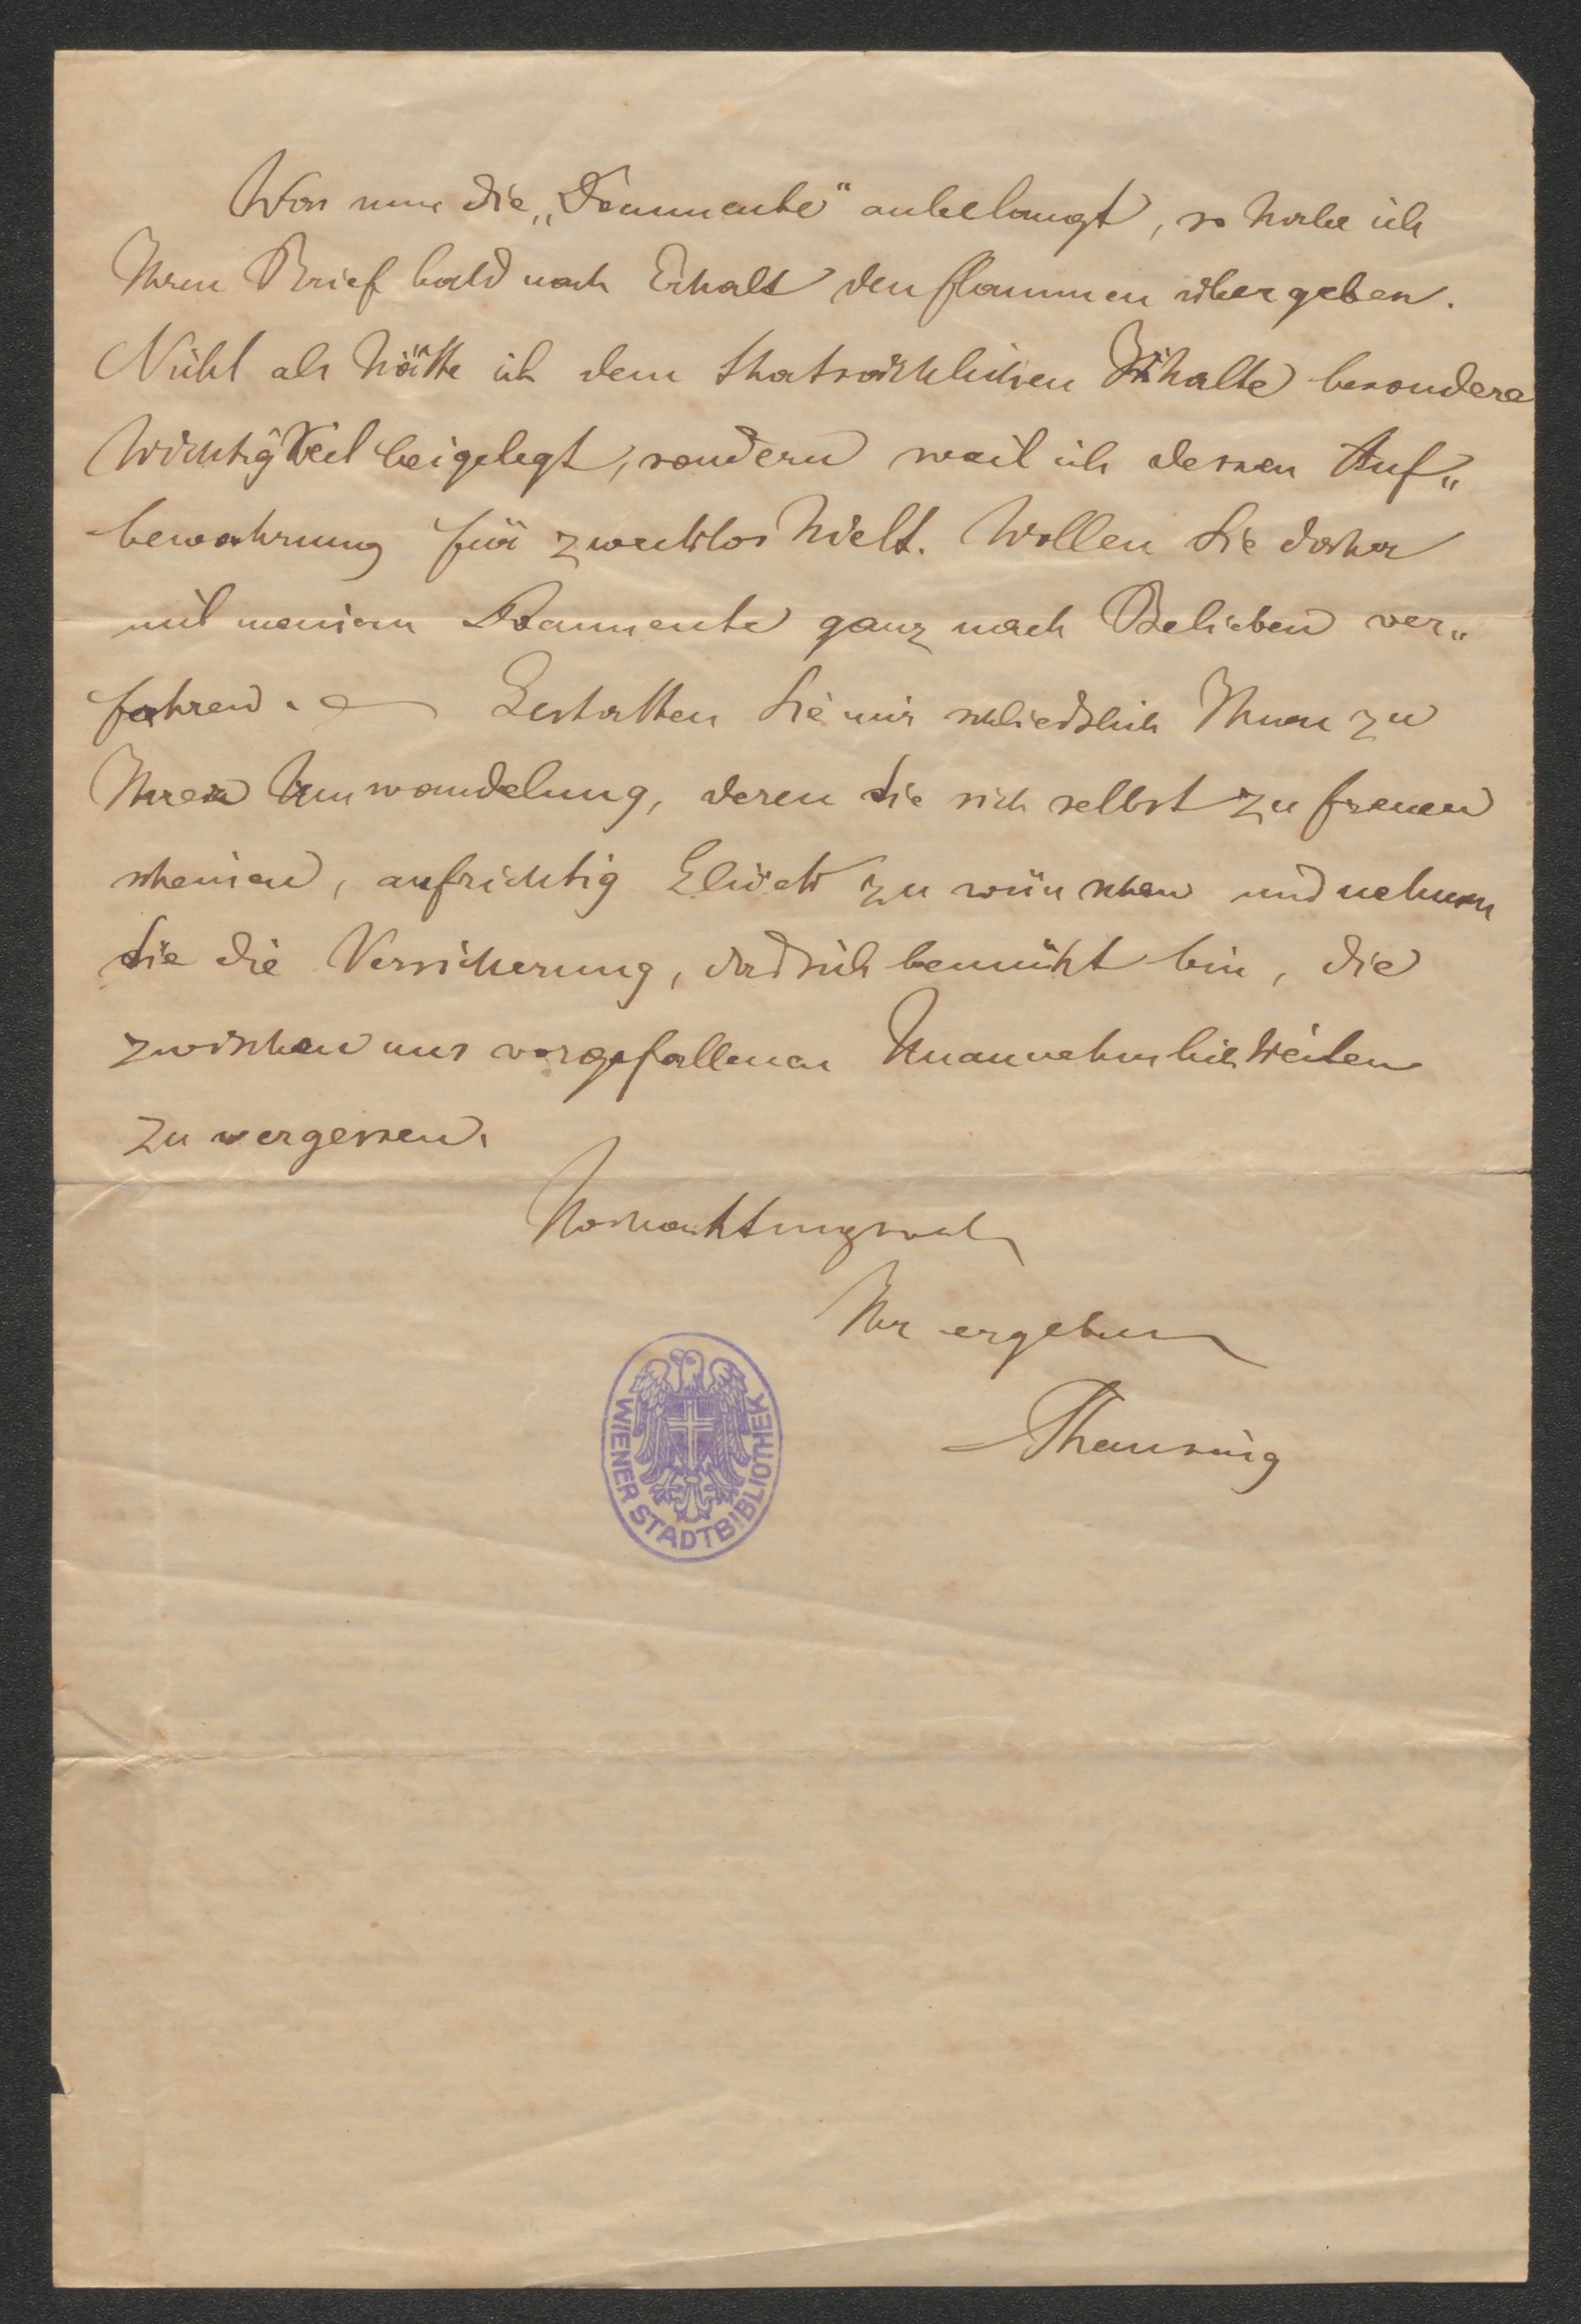 Was nun die „Documente" anbelangt, so habe ich
Ihren Brief bald nach Erhalt den Flammen übergeben.
Nicht als hätte ich dem thatsächlichen Inhalte besondere
Wichtigkeit beigelegt, sondern weil ich dessen Auf„
bewahrung für zwecklos hielt. Wollen Sie daher
mit meinem Documente ganz nach Belieben ver„
fahren. — Gestatten Sie mir schließlich Ihnen zu
Ihrer Umwandelung, deren Sie sich selbst zu freuen
scheinen, aufrichtig Glück zu wünschen und nehmen
Sie die Versicherung, daß ich bemüht bin, die
zwischen uns vorgefallenen Unannehmlichkeiten
zu vergessen.
Hochachtungsvoll
Ihr ergebener
Thausing
WIENER STADTBIBLIOTHEK